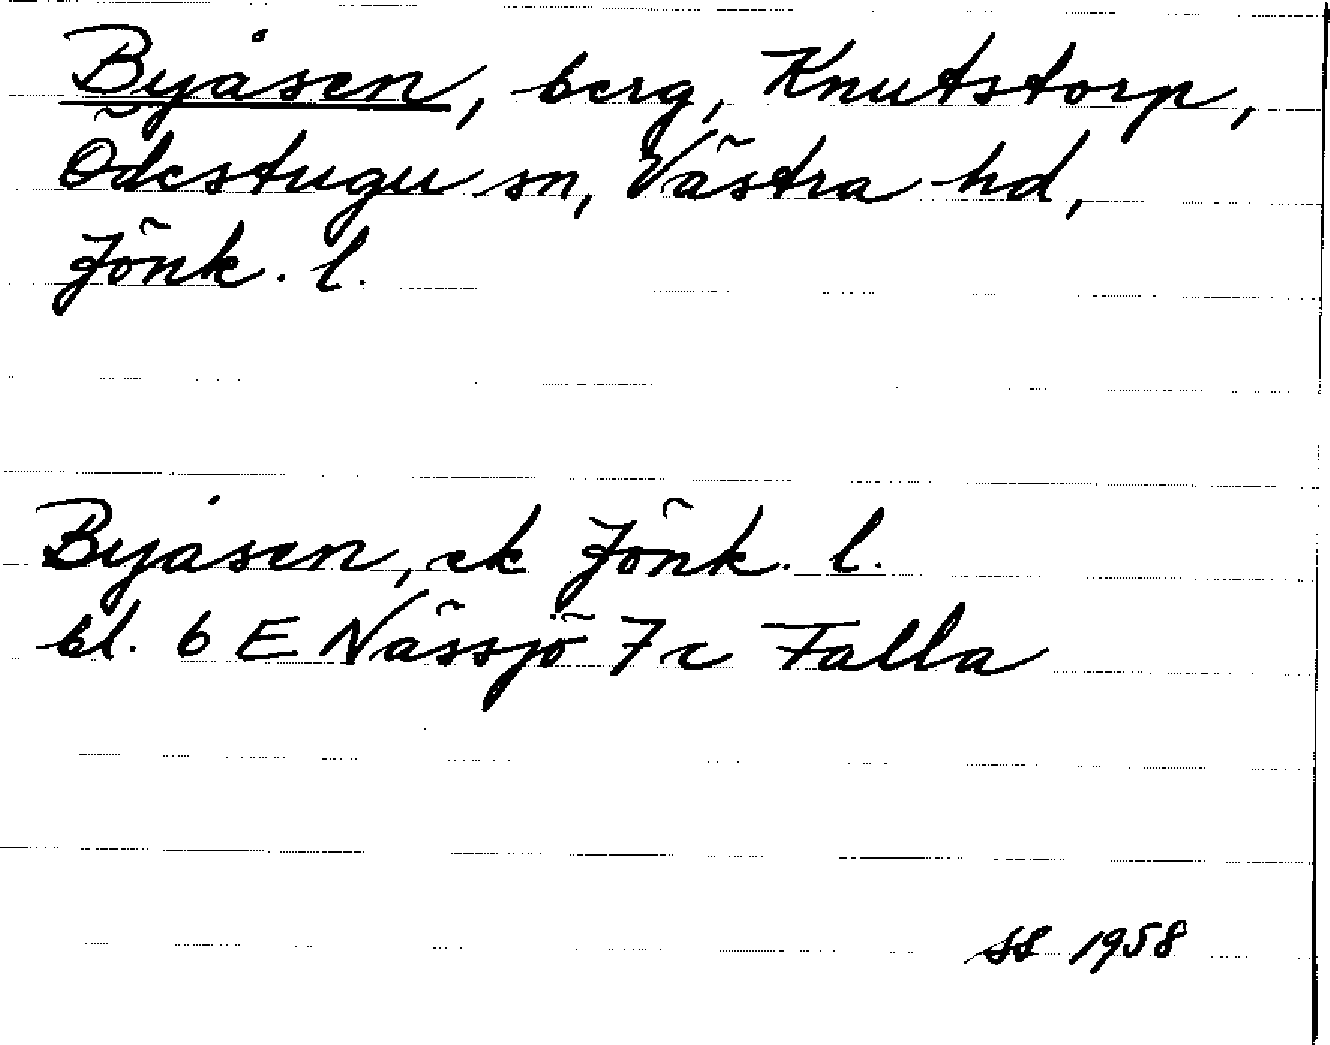 Byåsen, berg, Knutstorp,
Ödestugu sn, Västra hd,
Jönk. l.
Byåsen, ek Jönk. l.
bl. 6 E Nässjö 7 c Falla
SS 1958